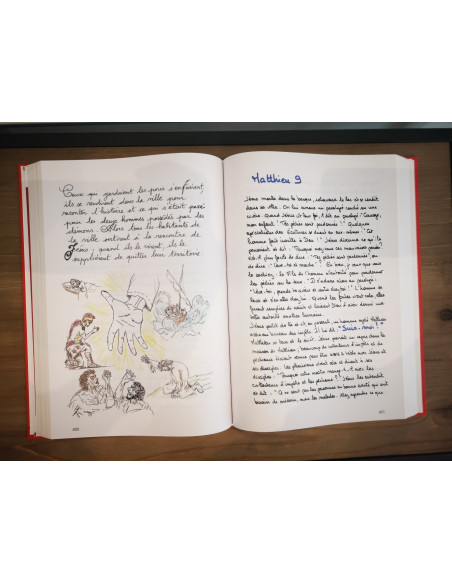 Ceux qui gardaient les porcs s'enfuirent,
ils se rendirent dans la ville pour
raconter l'histoire et ce qui s'était passé
pour les deux hommes possédés par des
démons. Alors tous les habitants de
la ville sortirent à la rencontre de
Jésus ; quand ils le virent, ils le
supplièrent de quitter leur territoire
Matthieu 9
Jésus monta dans la barque, retraversa le lac et se rendit
dans sa ville. On lui amena un paralysé couché sur une
civière. Quand Jésus vit leur foi, il dit au paralysé : "Courage,
mon enfant ! Tes péchés sont pardonnés ! " Quelques
spécialistes des Écritures se dirent en eux-mêmes : " Cet
homme fait insulte à Dieu ! " Jésus discerna ce qu'ils
pensaient et dit : " Pourquoi avez-vous ces mauvaises pensées ?
de dire : " Lève-toi et marche " ? Eh bien, je veux que vous
le sachiez : le Fils de l'homme a l'autorité pour pardonner
les péchés sur la terre. " Il s'adressa alors au paralysé :
" Lève-toi, prends ta civière et rentre chez toi ! " L'homme se
leva et s'en alla chez lui. Quand les foules virent cela, elles
furent remplies de crainte et louèrent Dieu d'avoir donné une
telle autorité aux êtres humains.
Jésus partit de là et vit, en passant, un homme appelé Matthieu
assis au bureau des impôts. Il lui dit : " Suis-moi ! "
Matthieu se leva et le suivit. Jésus prenait un repas dans la
maison de Matthieu ; beaucoup de collecteurs d'impôts et de
pécheurs étaient venus prendre place à table avec Jésus et
ses disciples. Les pharisiens virent cela et dirent à ses
disciples : " Pourquoi votre maître mange-t-il avec les
collecteurs d'impôts et les pécheurs ? " Jésus les entendit
et dit : " Ce ne sont pas les personnes en bonne santé qui ont
besoin de médecin, mais les malades. Allez apprendre ce que